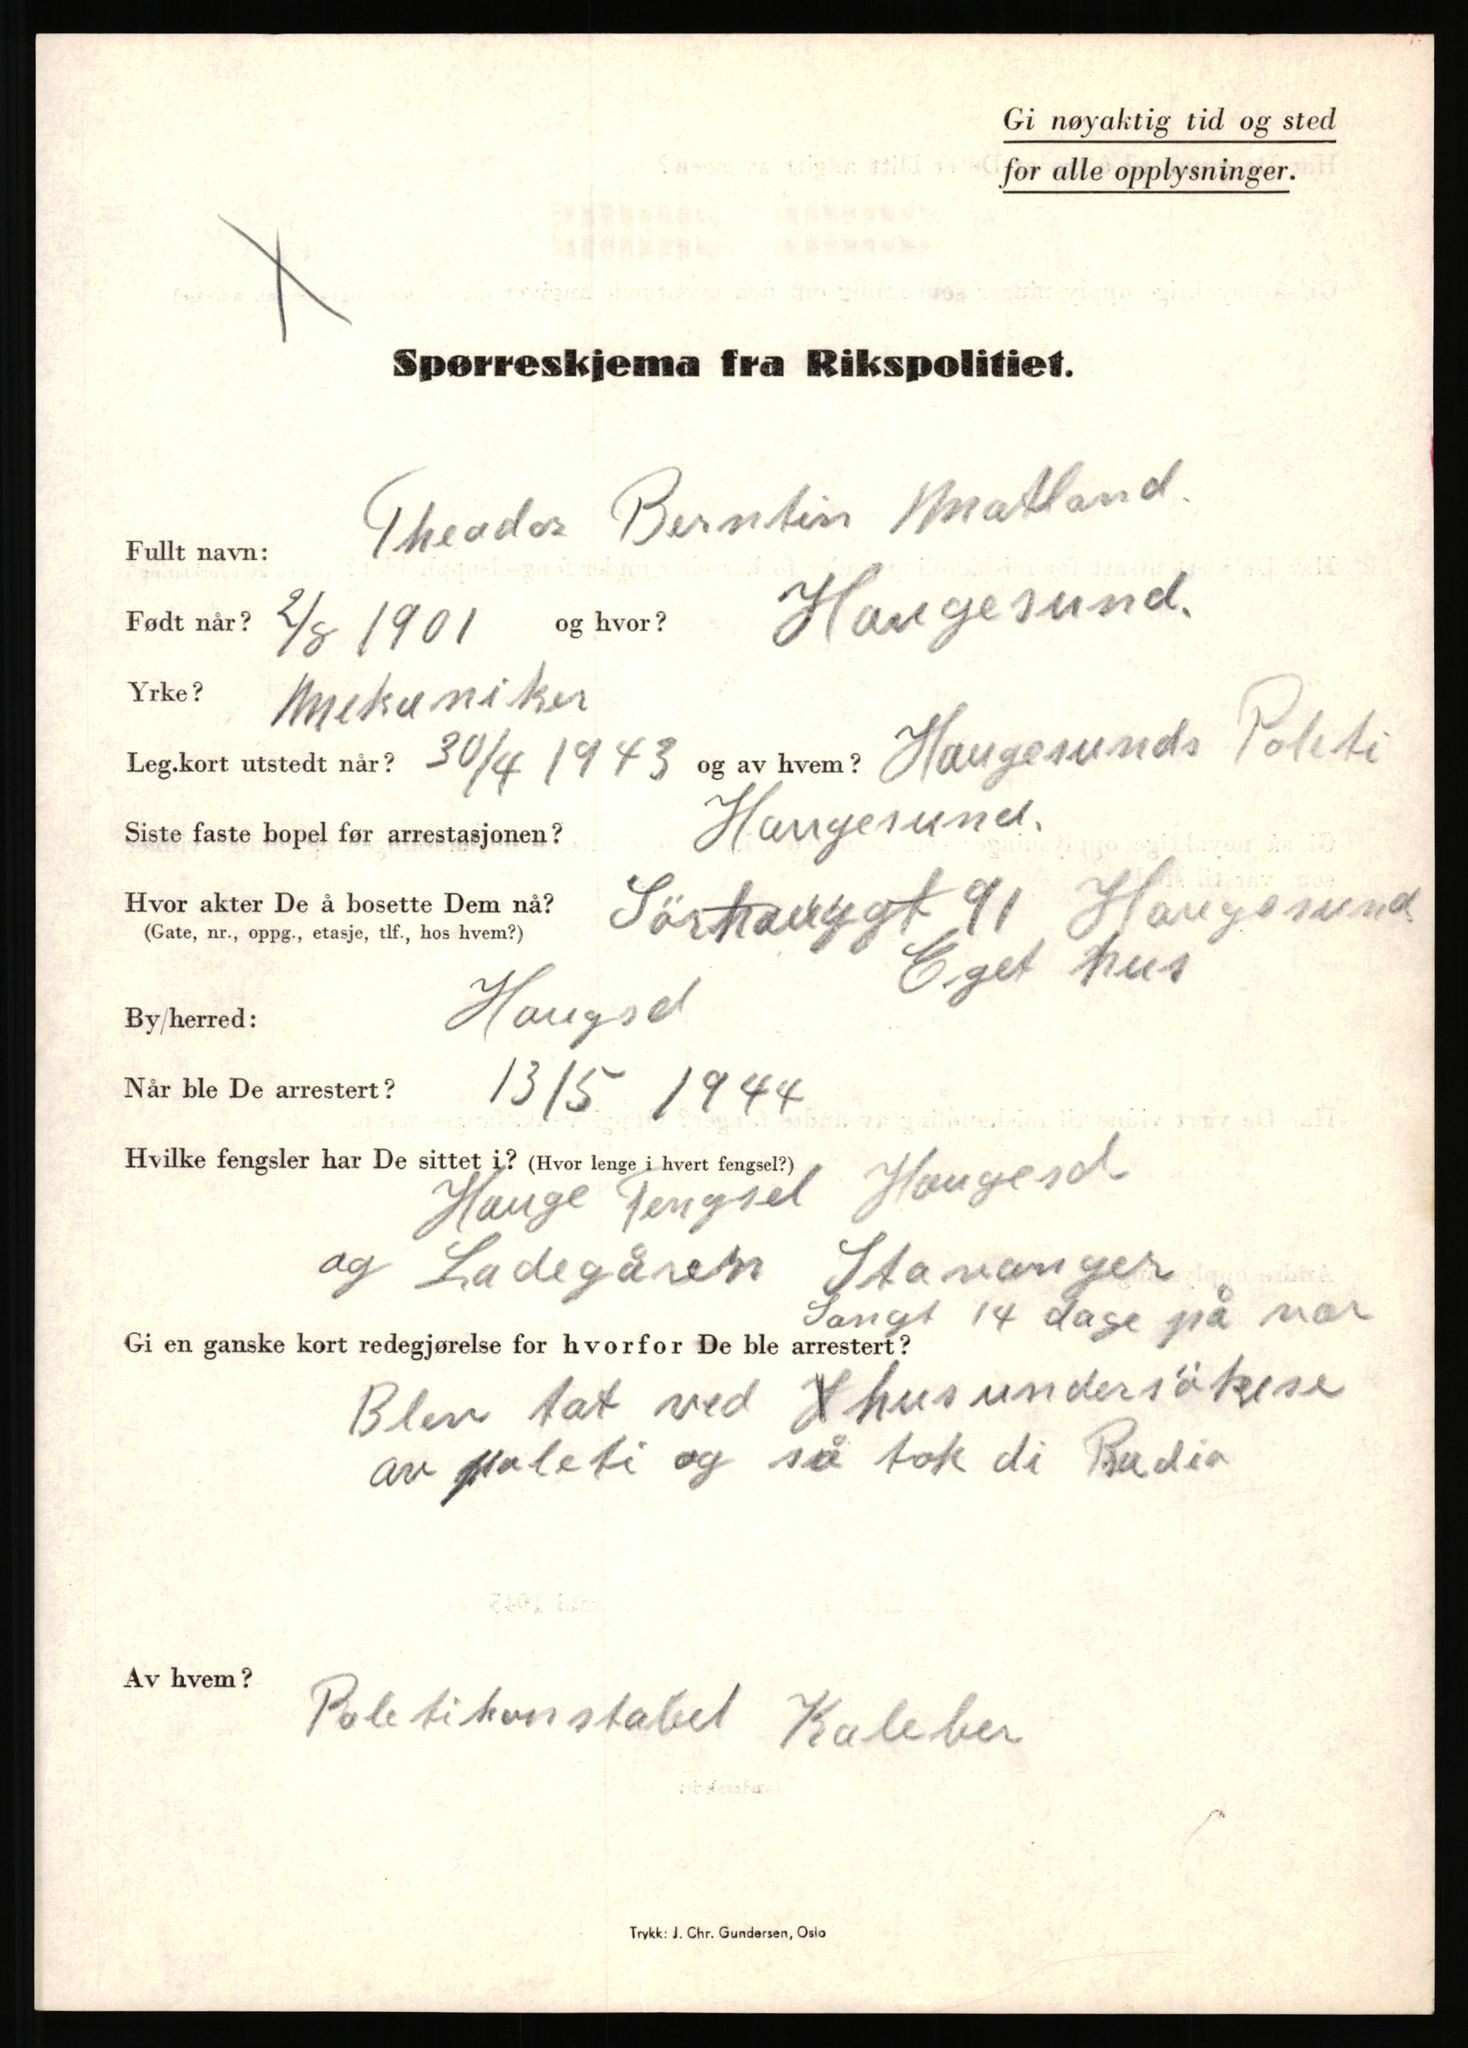 Gi nøyaktig tid og sted
for alle opplysninger.
Spørreskjema fra Rikspolitiet.
Fullt navn: Theodor Berntin Matland.
Født når? 2/8 1901 og hvor? Haugesund.
Yrke? Mekaniker
Leg.kort utstedt når? 30/4 1943 og av hvem? Haugesunds Poleti
Siste faste bopel før arrestasjonen? Haugesund.
Hvor akter De å bosette Dem nå? Sörhauggt 91 Haugesund
(Gate, nr., oppg., etasje, tlf., hos hvem?) Eget hus
By/herred: Haugsd
Når ble De arrestert? 13/5 1944
Hvilke fengsler har De sittet i? (Hvor lenge i hvert fengsel?)
Hauge Fengsel Haugesd
og Ladegåren Stavanger
Sangt 14 dage på vær
Gi en ganske kort redegjørelse for hvorfor De ble arrestert?
Blev tat ved husundersökelse
av poleti og så tok di Radio
Av hvem? Poletikonstabel Kaleber
Trykk: J. Chr. Gundersen, Oslo